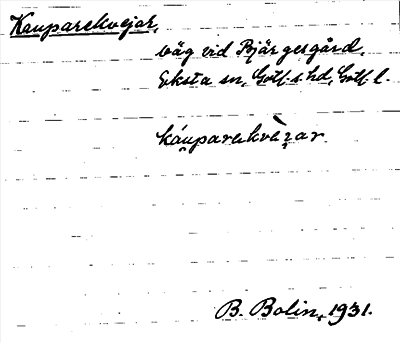 Kauparekvejar,
väg vid Bjärgesgård,
Eksta sn, Gotl. s. hd, Gotl. l.
káuparekvèʒar.
B. Bolin, 1931.